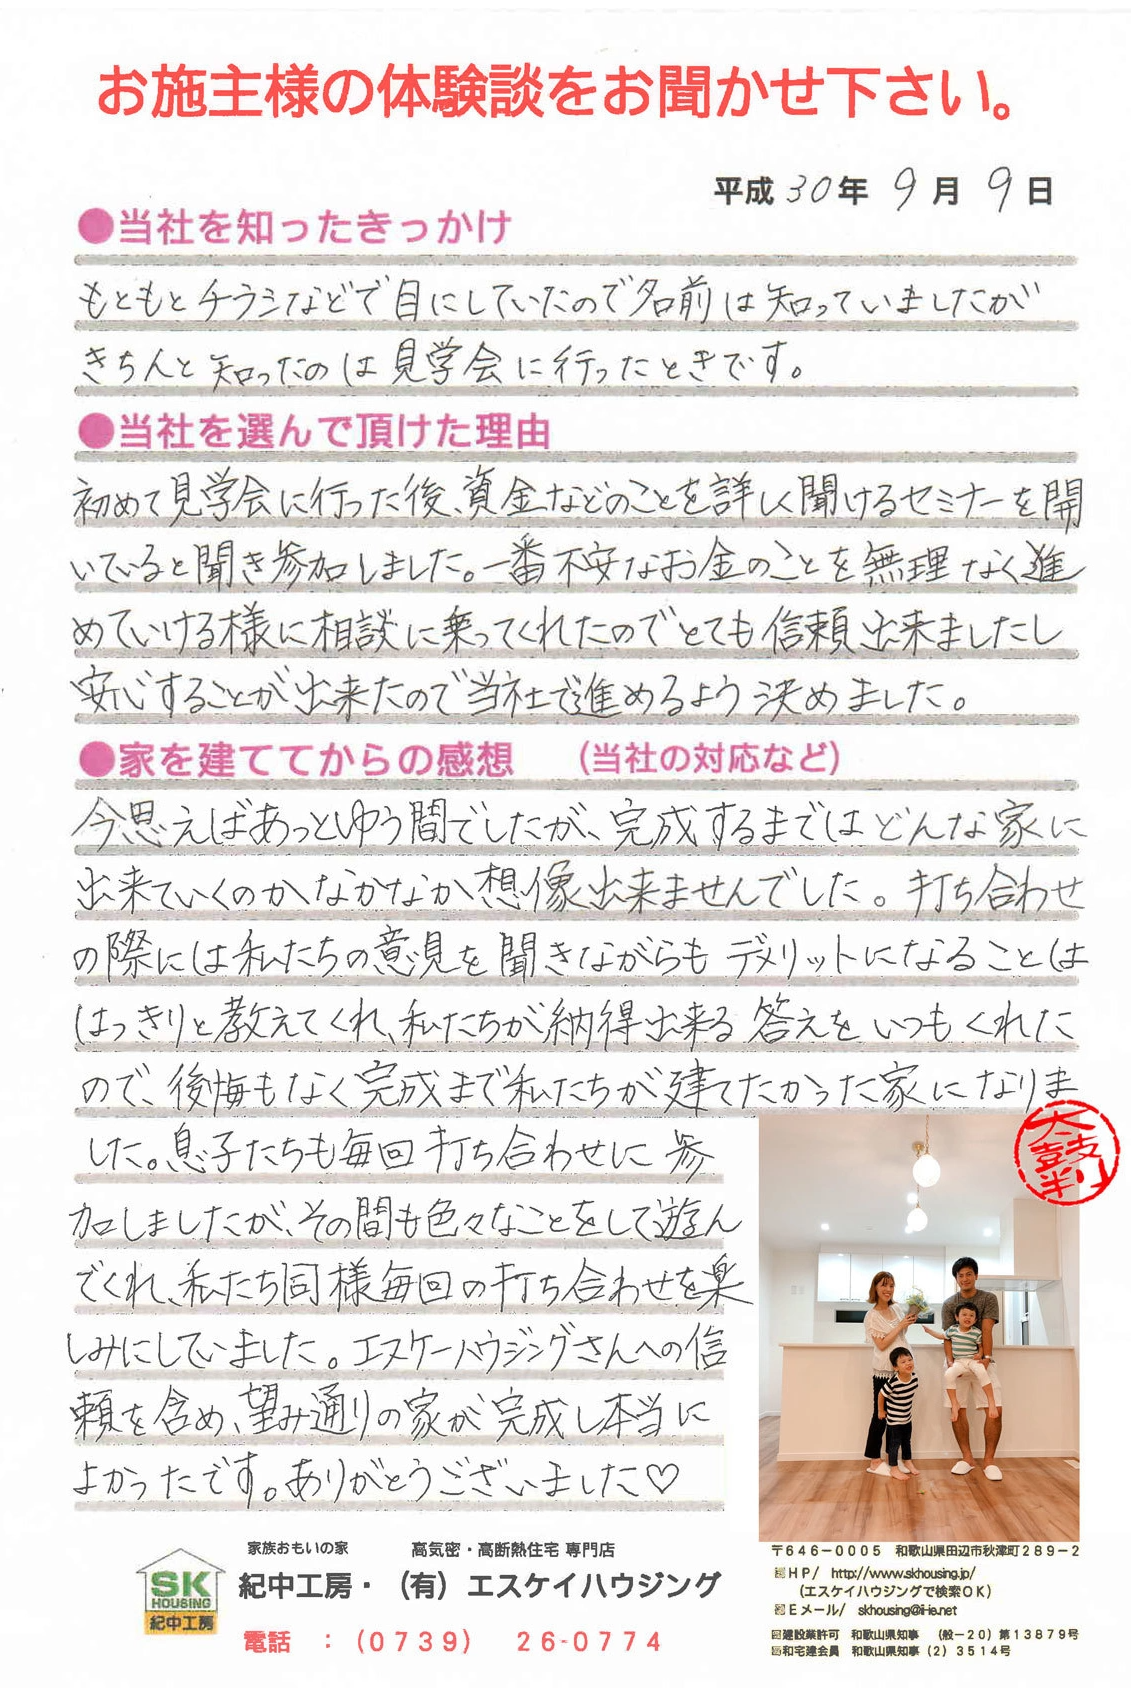 お施主様の体験談をお聞かせ下さい。
平成30年 9月 9日
●当社を知ったきっかけ
もともとチラシなどで目にしていたので名前は知っていましたが
きちんと知ったのは見学会に行ったときです。
●当社を選んで頂けた理由
初めて見学会に行った後、資金などのことを詳しく聞けるセミナーを開
いていると聞き参加しました。一番不安なお金のことを無理なく進
めていける様に相談に乗ってくれたのでとても信頼出来ましたし
安心することが出来たので当社で進めるよう決めました。
●家を建ててからの感想 （当社の対応など）
今思えばあっとゆう間でしたが、完成するまではどんな家に
出来ていくのかなかなか想像出来ませんでした。打ち合わせ
の際には私たちの意見を聞きながらもデメリットになることは
はっきりと教えてくれ、私たちが納得出来る答えをいつもくれた
ので、後悔もなく完成まで私たちが建てたかった家になりま
した。息子たちも毎回打ち合わせに参
加しましたが、その間も色々なことをして遊ん
でくれ、私たち同様毎回の打ち合わせを楽
しみにしていました。エスケーハウジングさんへの信
頼を含め、望み通りの家が完成し本当に
よかったです。ありがとうございました♡
太鼓判
家族おもいの家 高気密・高断熱住宅 専門店
SK HOUSING 紀中工房
紀中工房・（有）エスケイハウジング
電話 ：（0739） 26-0774
〒646－0005 和歌山県田辺市秋津町289－2
HP/ http://www.skhousing.jp/
（エスケイハウジングで検索OK）
Eメール/ skhousing@ii-ie.net
建設業許可 和歌山県知事 （般－20）第13879号
和宅建会員 和歌山県知事（2）3514号